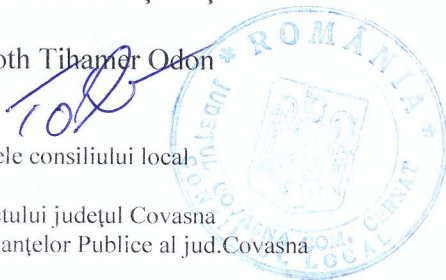 oth Tihamer Odon
ele consiliului local
etului judeţul Covasna
anţelor Publice al jud.Covasna
* ROMÂNIA *
JUDEŢUL COVASNA COM. CERNAT
CONSILIUL LOCAL